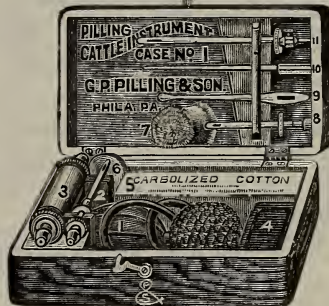 PILLING
CATTLE INSTRUMENT
CASE NO 1
G.P. PILLING & SON.
PHILA. PA.
11
10
9
8
7
6
5 CARBOLIZED COTTON
3
2
1
4
P
S